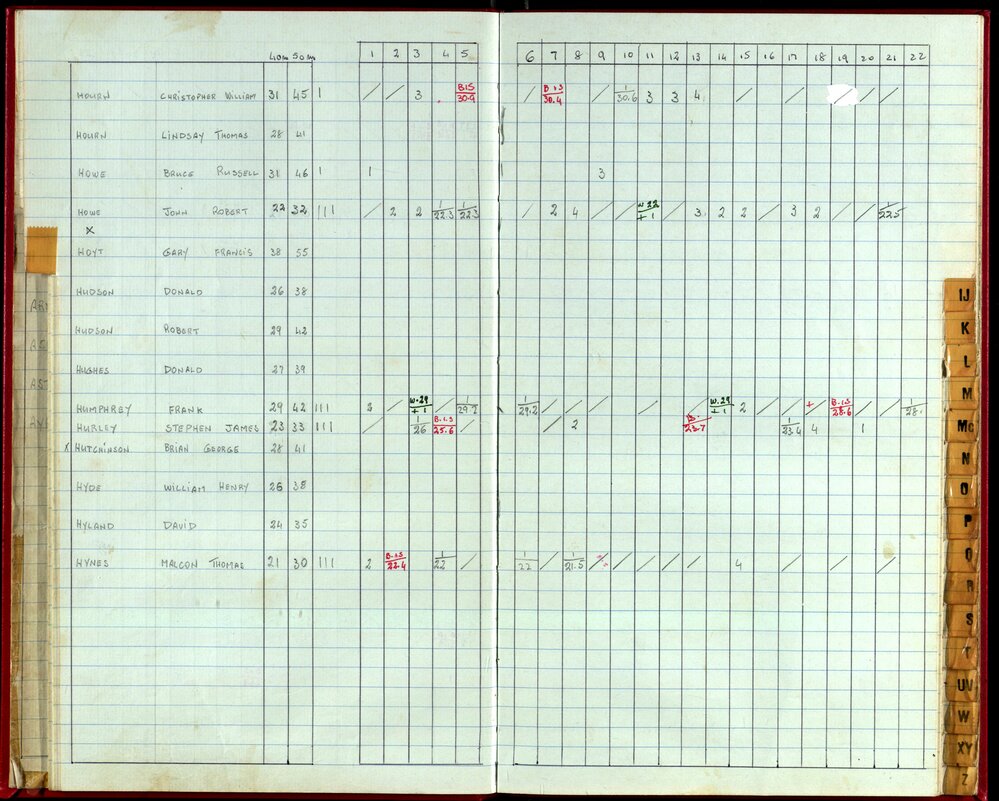 40m 50m 1 2 3 4 5 6 7 8 9 10 11 12 13 14 15 16 17 18 19 20 21 22
HOURN CHRISTOPHER WILLIAM 31 45 I / / 3 B.I.S 30.9 / B.I.S 30.4 / 1 30.6 3 3 4 / / / / /
HOURN LINDSAY THOMAS 28 41
HOWE BRUCE RUSSELL 31 46 I 1 3
HOWE JOHN ROBERT 22 32 III / 2 2 1 22.3 1 22.3 / 2 4 / / W.22 +1 / 3 2 2 / 3 2 / / 1 22.5
X
HOYT GARY FRANCIS 38 55
HUDSON DONALD 26 38
HUDSON ROBERT 29 42
HUGHES DONALD 27 39
HUMPHREY FRANK 29 42 III 2 / W.29 +1 / 1 29.2 1 29.2 / / / / / W.29 +1 2 / / + B.I.S 28.6 / / 1 28.
HURLEY STEPHEN JAMES 23 33 III / 26 B.I.S 25.6 / / 2 B. 23.7 1 23.4 4 1
X HUTCHINSON BRIAN GEORGE 28 41
HYDE WILLIAM HENRY 26 38
HYLAND DAVID 24 35
HYNES MALCON THOMAS 21 30 III 2 B.I.S 22.4 1 22 / 1 22 / 1 21.5 / / / / / 4 / / /
AR
AS
AST
IJ
K
L
M
Mc
N
O
P
Q
R
S
T
UV
W
XY
Z